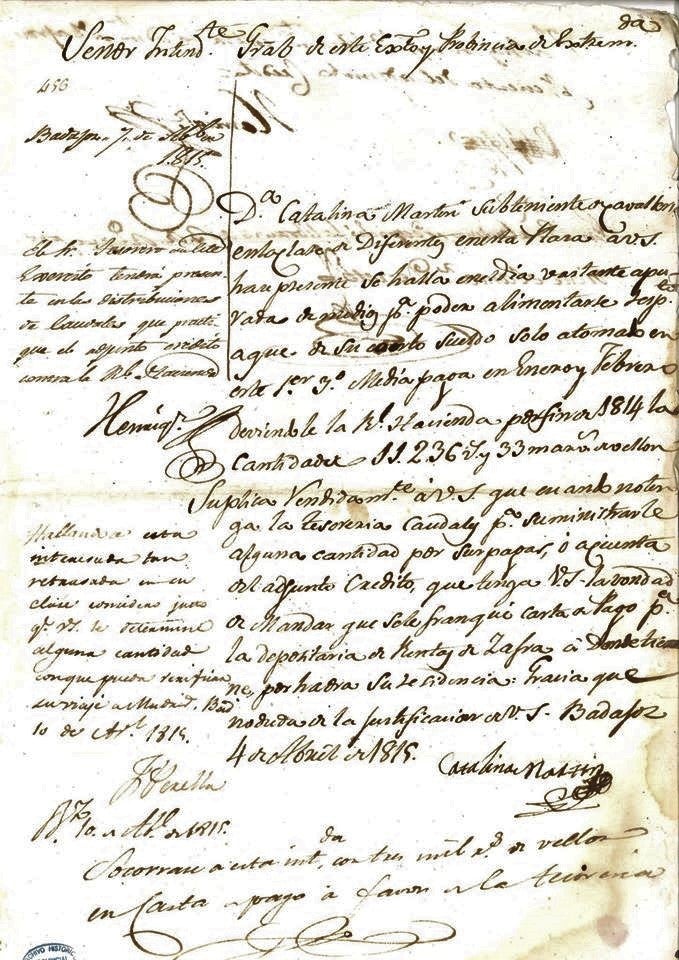 Señor Intend.te Gral de este Exto y Provincia de Extrem.da
453
Badajoz 7 de Abril
1815.
El Sr. Tesorero de este
Exercito tendrá presen-
te en las distribuciones
de caudales que practi-
que el adjunto credito
contra la Rl. Hacienda
Henriq.z
D.a Catalina Martin Subteniente de Cavalleria
en la clase de Diferentes en esta Plaza à V.S.
hace presente se halla en el dia bastante apu-
rada de medios p.a poder alimentarse respecto
a que de su sueldo solo a tomado en
este 1.er y 2.o Media paga en Enero y Febrero
deviendole la Rl. Hacienda por fin de 1814 la
cantidad de 11.236 r.s y 33 marav.s de vellon
Suplica Rendidam.te à V.S. que cuando no ten-
ga la tesoreria caudales p.a suministrarle
alguna cantidad por sus pagas, ò a cuenta
del adjunto Credito, que tenga V.S. la vondad
de Mandar que se le franqué carta de Pago p.a
la depositaria de Rentas de Zafra à Donde tie-
ne, por haora su residencia: Gracia que
no duda de la justificacion de V.S. Badajoz
4 de Abril de 1815.
Catalina Martin
Hallandose esta
interesada tan
retrasada en su
clase considero justo
q.e V.S. se determine
alguna cantidad
con que pueda verificar
su viaje a Madrid. Bad.
10 de Ab.l 1815.
B.z 10 de Ab.l de 1815.
Socorrase a esta int.da con tres mil r.s de vellon
en Carta de pago à favor de la tesoreria
ARCHIVO HISTORICO
PROVINCIAL